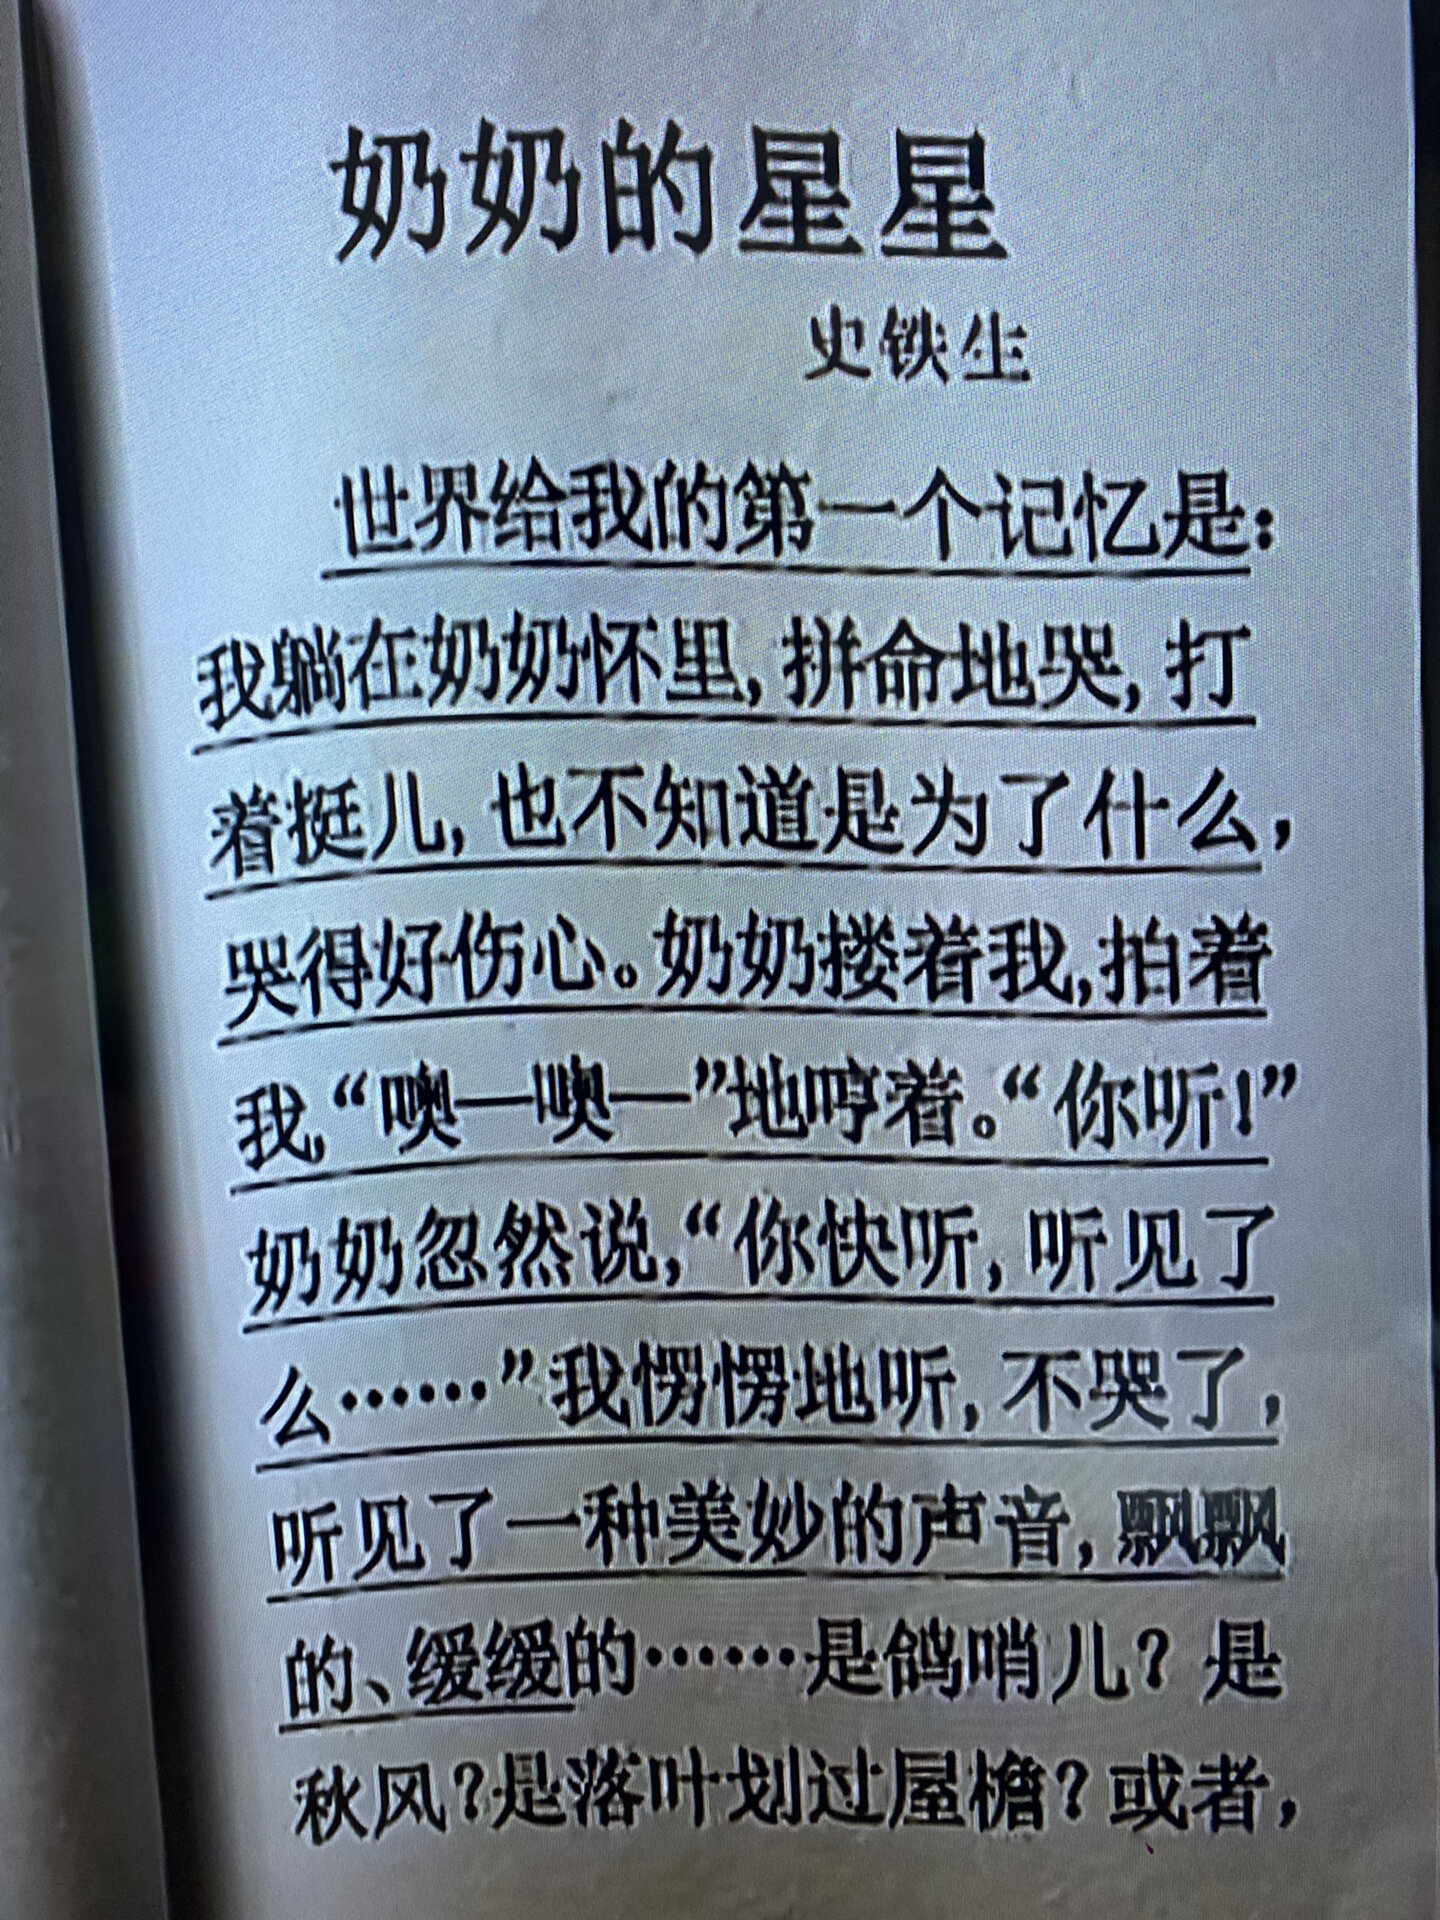 奶奶的星星
史铁生
世界给我的第一个记忆是：
我躺在奶奶怀里，拼命地哭，打
着挺儿，也不知道是为了什么，
哭得好伤心。奶奶搂着我，拍着
我，“噢—噢—”地哼着。“你听！”
奶奶忽然说，“你快听，听见了
么……”我愣愣地听，不哭了，
听见了一种美妙的声音，飘飘
的、缓缓的……是鸽哨儿？是
秋风？是落叶划过屋檐？或者，